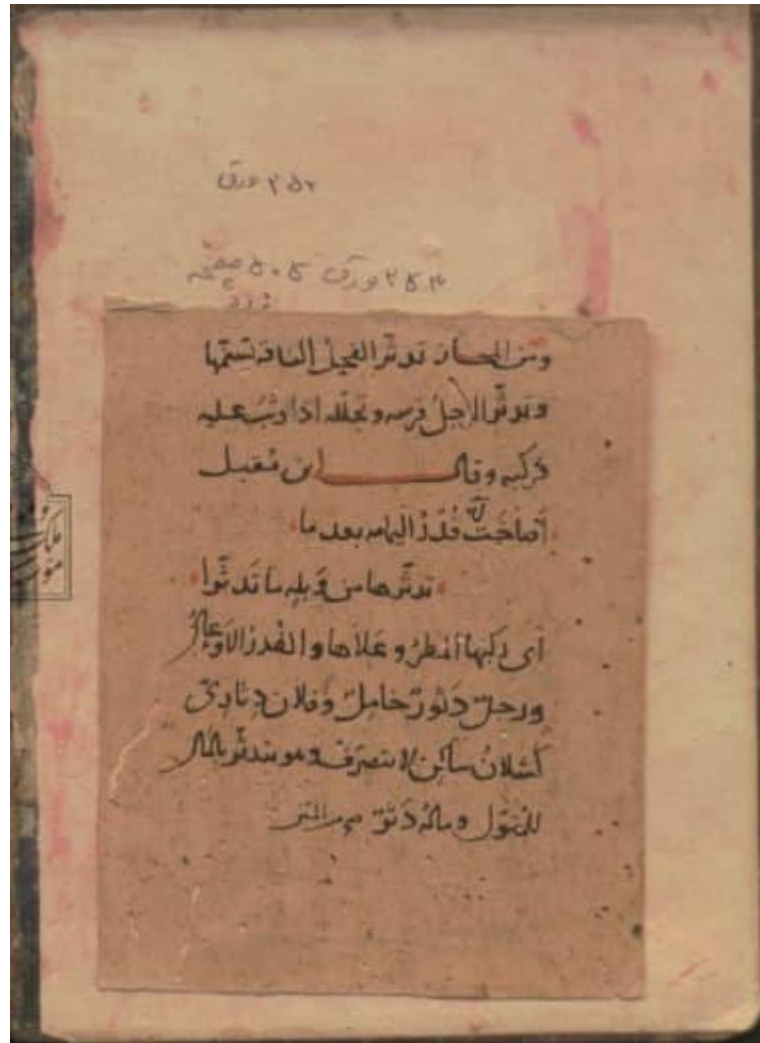 ۲۵۲ ورق
۲۵۳ ورق ۵۰۵ صفحه
ومن المجاز تدثّر الفحلُ الناقة تسنّمها
وتدثّر الرجلُ فرسه وتجلّله اذا وثب عليه
فركبه وقال ابن مُقبل
أصاخَت له فُدْرُ اليمامه بعد ما
تدثّرها من وَبله ما تَدثّرا
أى ركبها المطرُ وعَلاها والفُدرُ الاوعالُ
ورجلٌ دَثورٌ خاملٌ وفلان دِثارىٌّ
كسْلانُ ساكن لا يتصرّف وهو يتدثّر بالمال
للمُتموّل وماله دَثْرٌ